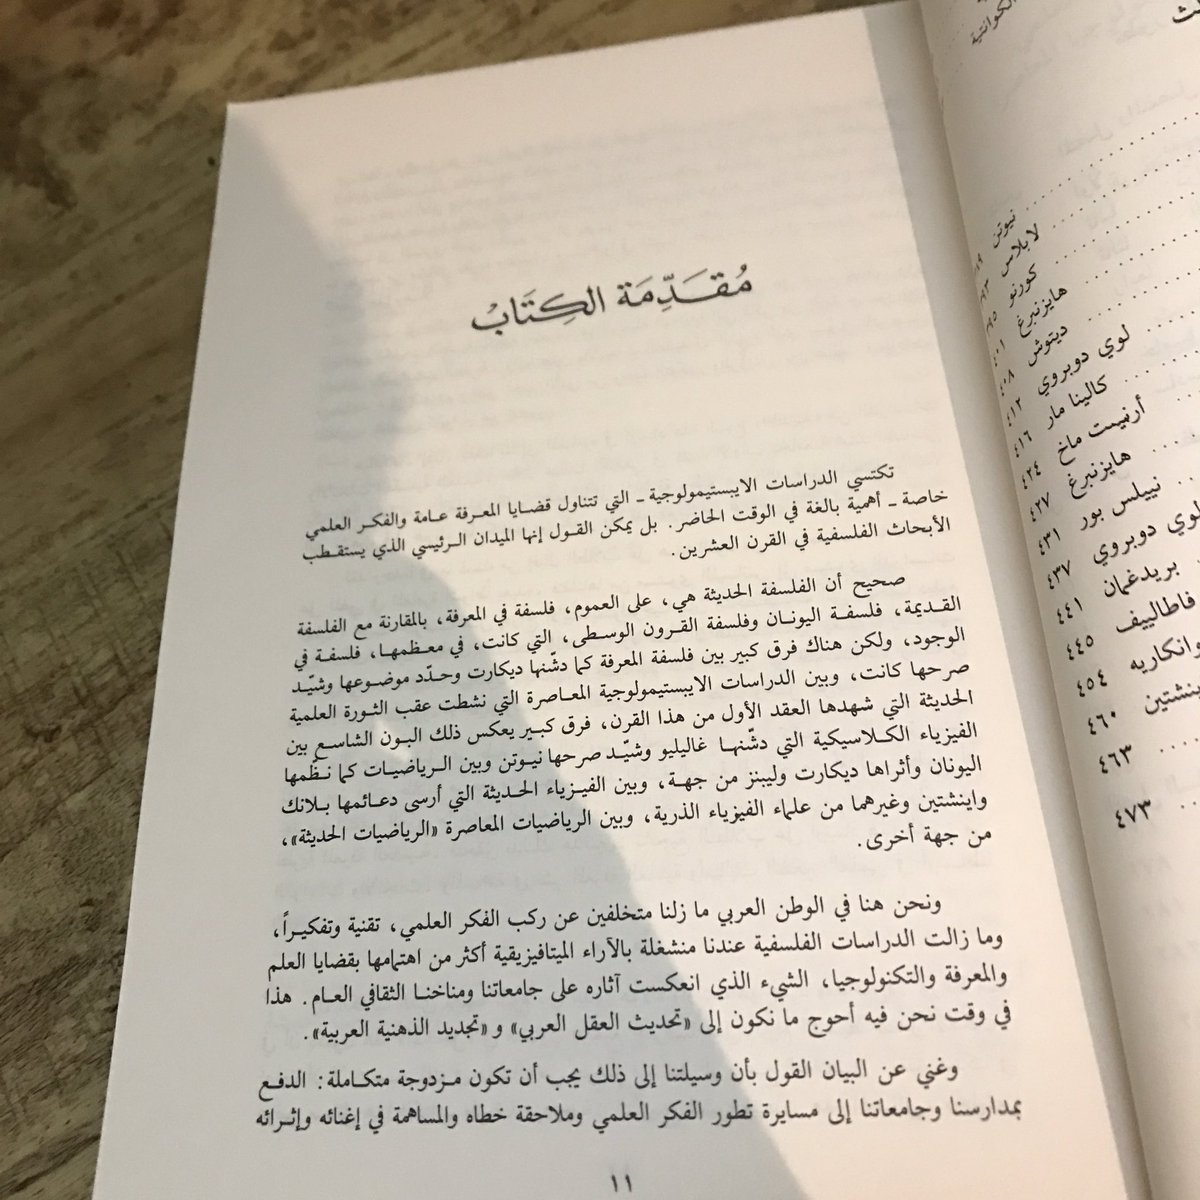 مُقَدِّمَة الكِتَابْ
تكتسي الدراسات الايبستيمولوجية ـ التي تتناول قضايا المعرفة عامة والفكر العلمي
خاصة ـ أهمية بالغة في الوقت الحاضر. بل يمكن القول إنها الميدان الرئيسي الذي يستقطب
الأبحاث الفلسفية في القرن العشرين.
صحيح أن الفلسفة الحديثة هي، على العموم، فلسفة في المعرفة، بالمقارنة مع الفلسفة
القديمة، فلسفة اليونان وفلسفة القرون الوسطى، التي كانت، في معظمها، فلسفة في
الوجود، ولكن هناك فرق كبير بين فلسفة المعرفة كما دشّنها ديكارت وحدّد موضوعها وشيّد
صرحها كانت، وبين الدراسات الايبستيمولوجية المعاصرة التي نشطت عقب الثورة العلمية
الحديثة التي شهدها العقد الأول من هذا القرن، فرق كبير يعكس ذلك البون الشاسع بين
الفيزياء الكلاسيكية التي دشّنها غاليليو وشيّد صرحها نيوتن وبين الرياضيات كما نظّمها
اليونان وأثراها ديكارت وليبنز من جهة، وبين الفيزياء الحديثة التي أرسى دعائمها بلانك
واينشتين وغيرهما من علماء الفيزياء الذرية، وبين الرياضيات المعاصرة «الرياضيات الحديثة»،
من جهة أخرى.
ونحن هنا في الوطن العربي ما زلنا متخلفين عن ركب الفكر العلمي، تقنية وتفكيراً،
وما زالت الدراسات الفلسفية عندنا منشغلة بالآراء الميتافيزيقية أكثر من اهتمامها بقضايا العلم
والمعرفة والتكنولوجيا، الشيء الذي انعكست آثاره على جامعاتنا ومناخنا الثقافي العام. هذا
في وقت نحن فيه أحوج ما نكون إلى «تحديث العقل العربي» و«تجديد الذهنية العربية».
وغني عن البيان القول بأن وسيلتنا إلى ذلك يجب أن تكون مزدوجة متكاملة: الدفع
بمدارسنا وجامعاتنا إلى مسايرة تطور الفكر العلمي وملاحقة خطاه والمساهمة في إغنائه وإثرائه
١١
الكوانتية
نيوتن
لابلاس
كورنو
هايزنبرغ ٤٠١
ديتوش ٤٠٨
لوي دوبروي ٤١٢
كالينا مار ٤١٦
أرنيست ماخ ٤٢٤
هايزنبرغ ٤٢٧
نييلس بور ٤٣١
لوي دوبروي ٤٣٧
بريدغمان ٤٤١
فاطالييف ٤٤٥
وانكاريه ٤٥٤
ينشتين ٤٦٠
٤٦٣
٤٧٣